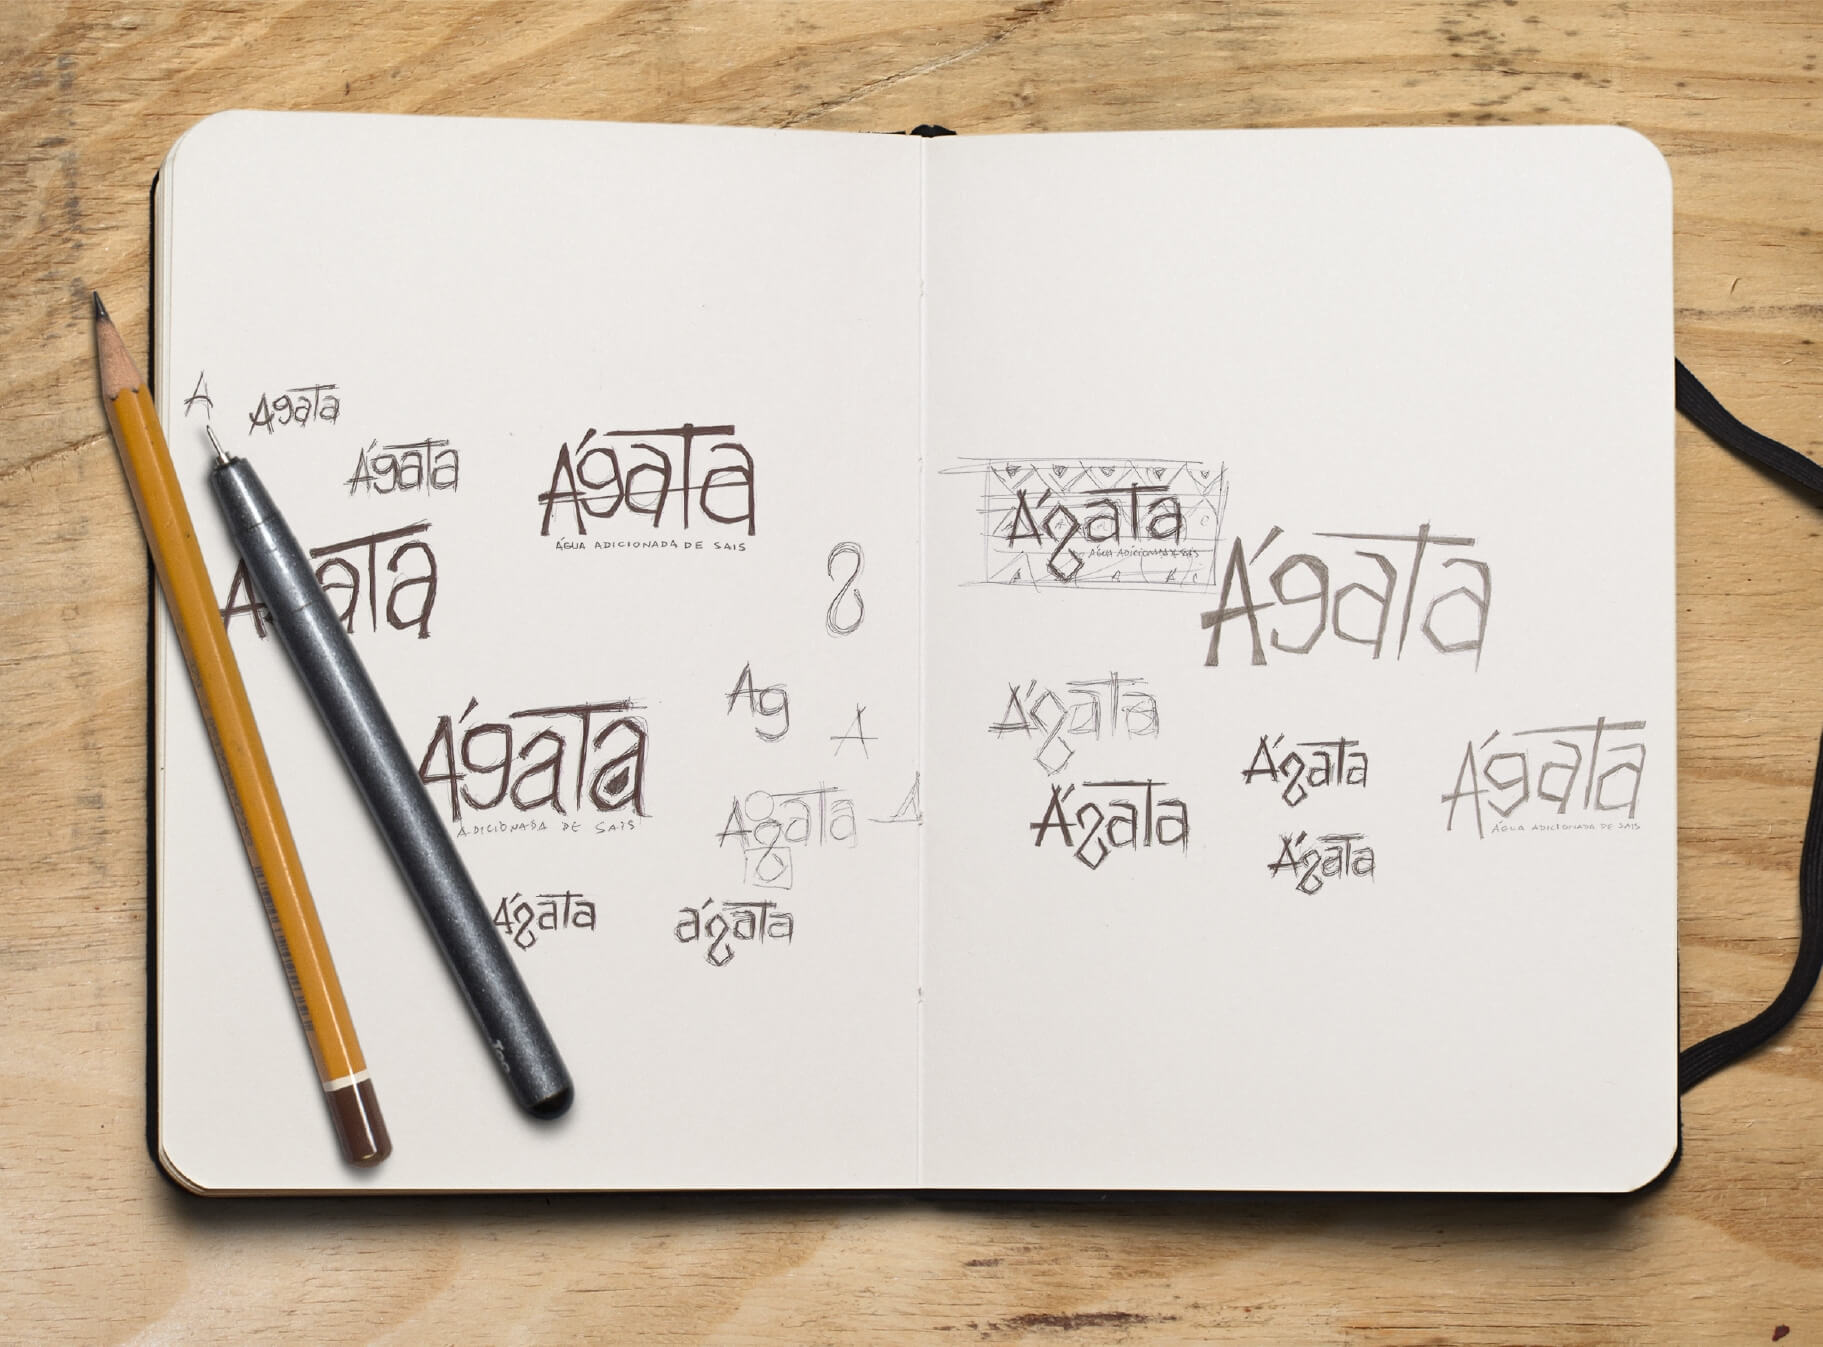 A
Ágata
Ágata
Ágata
ÁGUA ADICIONADA DE SAIS
Ágata
Ag
A
Ágata
ADICIONADA DE SAIS
Ágata
Ágata
ágata
Ágata
ÁGUA ADICIONADA DE SAIS
Ágata
Ágata
Ágata
Ágata
ÁGUA ADICIONADA DE SAIS
Ágata
Ágata